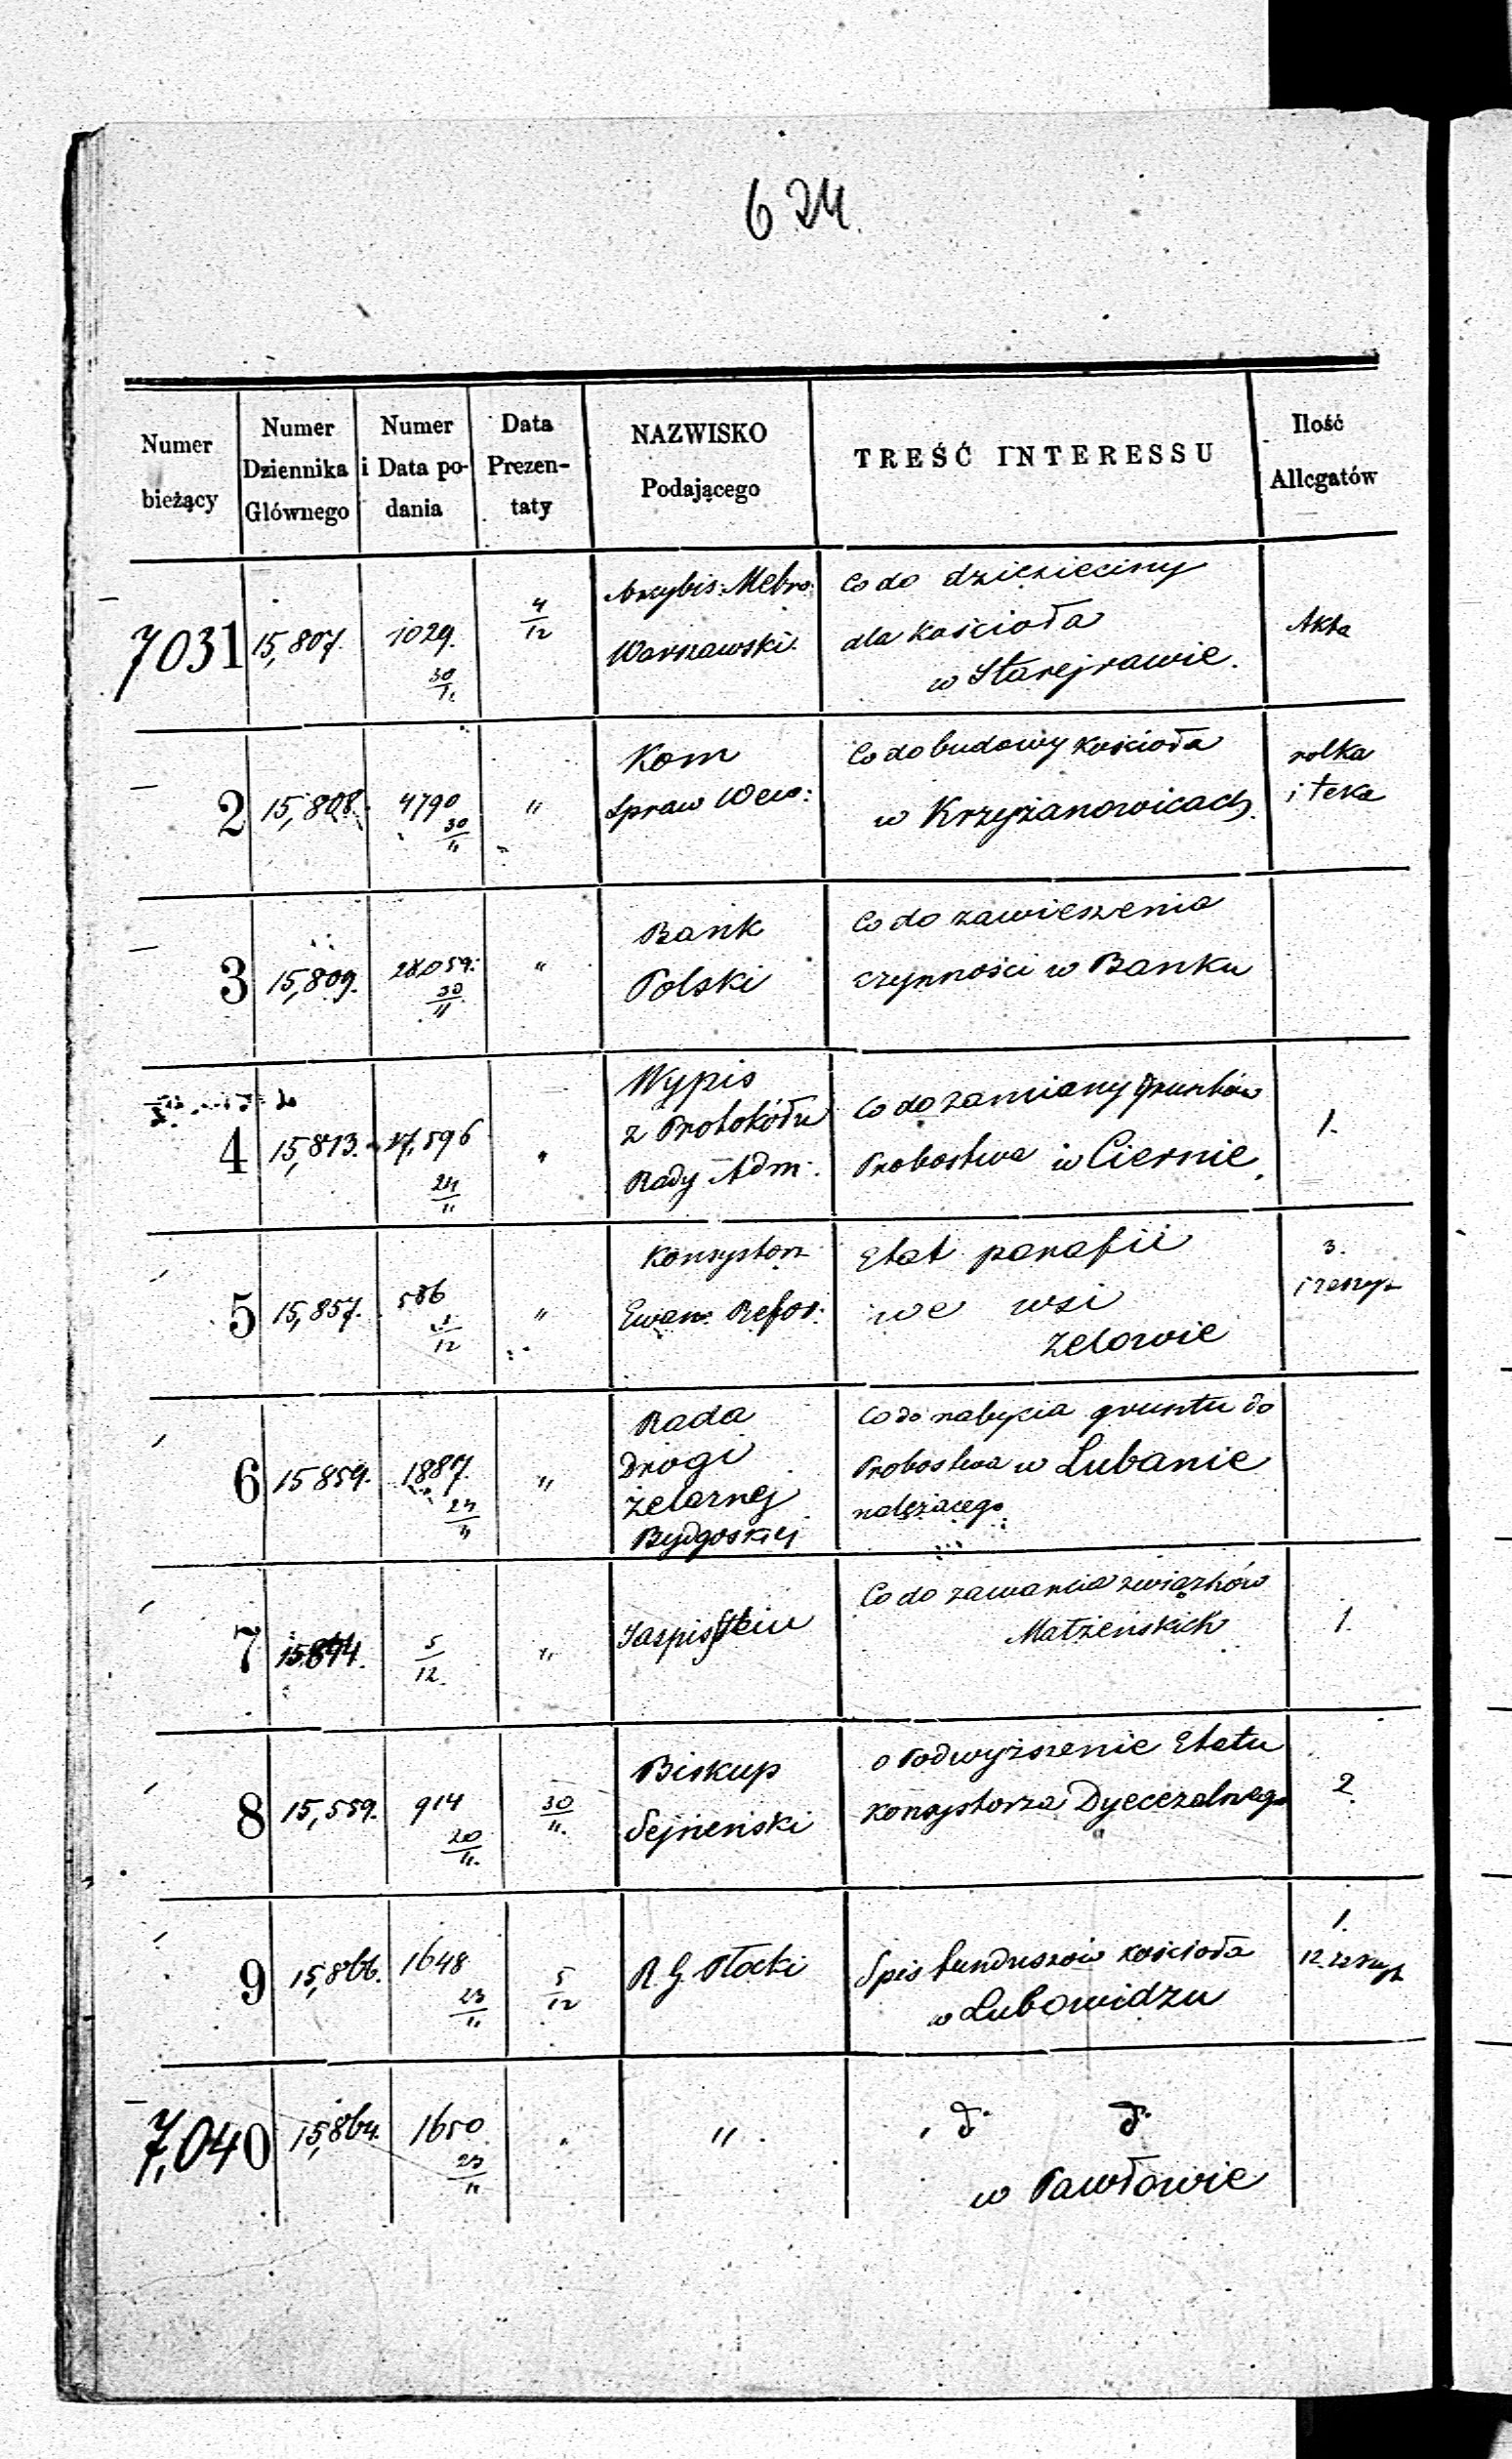 624.
Numer bieżący | Numer Dziennika Głównego | Numer i Data podania | Data Prezentaty | NAZWISKO Podającego | TREŚĆ INTERESSU | Ilość Allegatów
7031 | 15,807. | 1029. 30/11 | 4/12 | Arcybis: Metro: Warszawski. | Co do dziesięciny dla Kościoła w Starejrawie. | Akta
2 | 15,808. | 4790 30/11 | " | Kom Spraw Wew: | Co do budowy Kościoła w Krzyżanowicach. | rolka i teka
3 | 15,809. | 28059. 30/11 | " | Bank Polski | Co do zawieszenia czynności w Banku
4 | 15,813. | 17,596 24/11 | " | Wypis z Protokółu Rady Adm: | Co do zamiany Gruntów Probostwa w Ciernie. | 1.
5 | 15,857. | 586 1/12 | " | Konsystorz Ewan: Refor: | Etat parafii we wsi Zelowie | 3. i zeszyt
6 | 15859. | 1887. 24/11 | " | Rada Drogi Żelaznej Bydgoskiej | Co do nabycia gruntu do Probostwa w Lubanie należącego.
7 | 5/12 | " | Co do zawarcia związków Małżeńskich | 1.
8 | 15,559. | 914 20/11. | 30/11. | Biskup Sejneński | o Podwyższenie Etatu Konsystorza Dyecezalnego | 2
9 | 15,866. | 1648 23/11 | 5/12 | R. G. Płocki | Spis funduszów kościoła w Lubowidzu | 1. 12. zeszyt
7,040 | 15,864. | 1650 23/11 | " | " | d° d° w Pawłowie